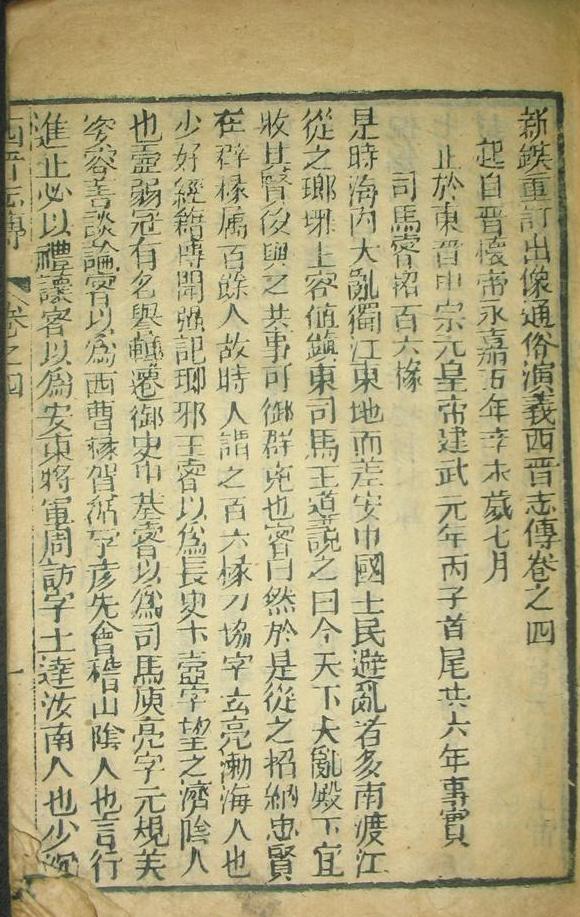 新鍥重訂出像通俗演義西晉志傳卷之四
起自晉懷帝永嘉五年辛未歲七月
止於東晉中宗元皇帝建武元年丙子首尾共六年事實
司馬睿招百六掾
是時海內大亂獨江東地而差安中國士民避亂者多南渡江
從之瑯琊王睿值鎮東司馬王道說之曰今天下大亂殿下宜
收其賢俊與之共事可御群兇也睿曰然於是從之招納忠賢
在群掾属百餘人故時人謂之百六掾刀協字玄亮渤海人也
少好經籍博聞强記瑯邪王睿以爲長史卞壺字望之濟陰人
也壺弱冠有名譽轉遷御史中基睿以爲司馬庾亮字元規美
姿容善談論睿以爲西曹掾賀循字彥先會稽山陰人也言行
進止必以禮讓睿以爲安東將軍周訪字士達汝南人也少沉
西晉志傳 卷之四 一